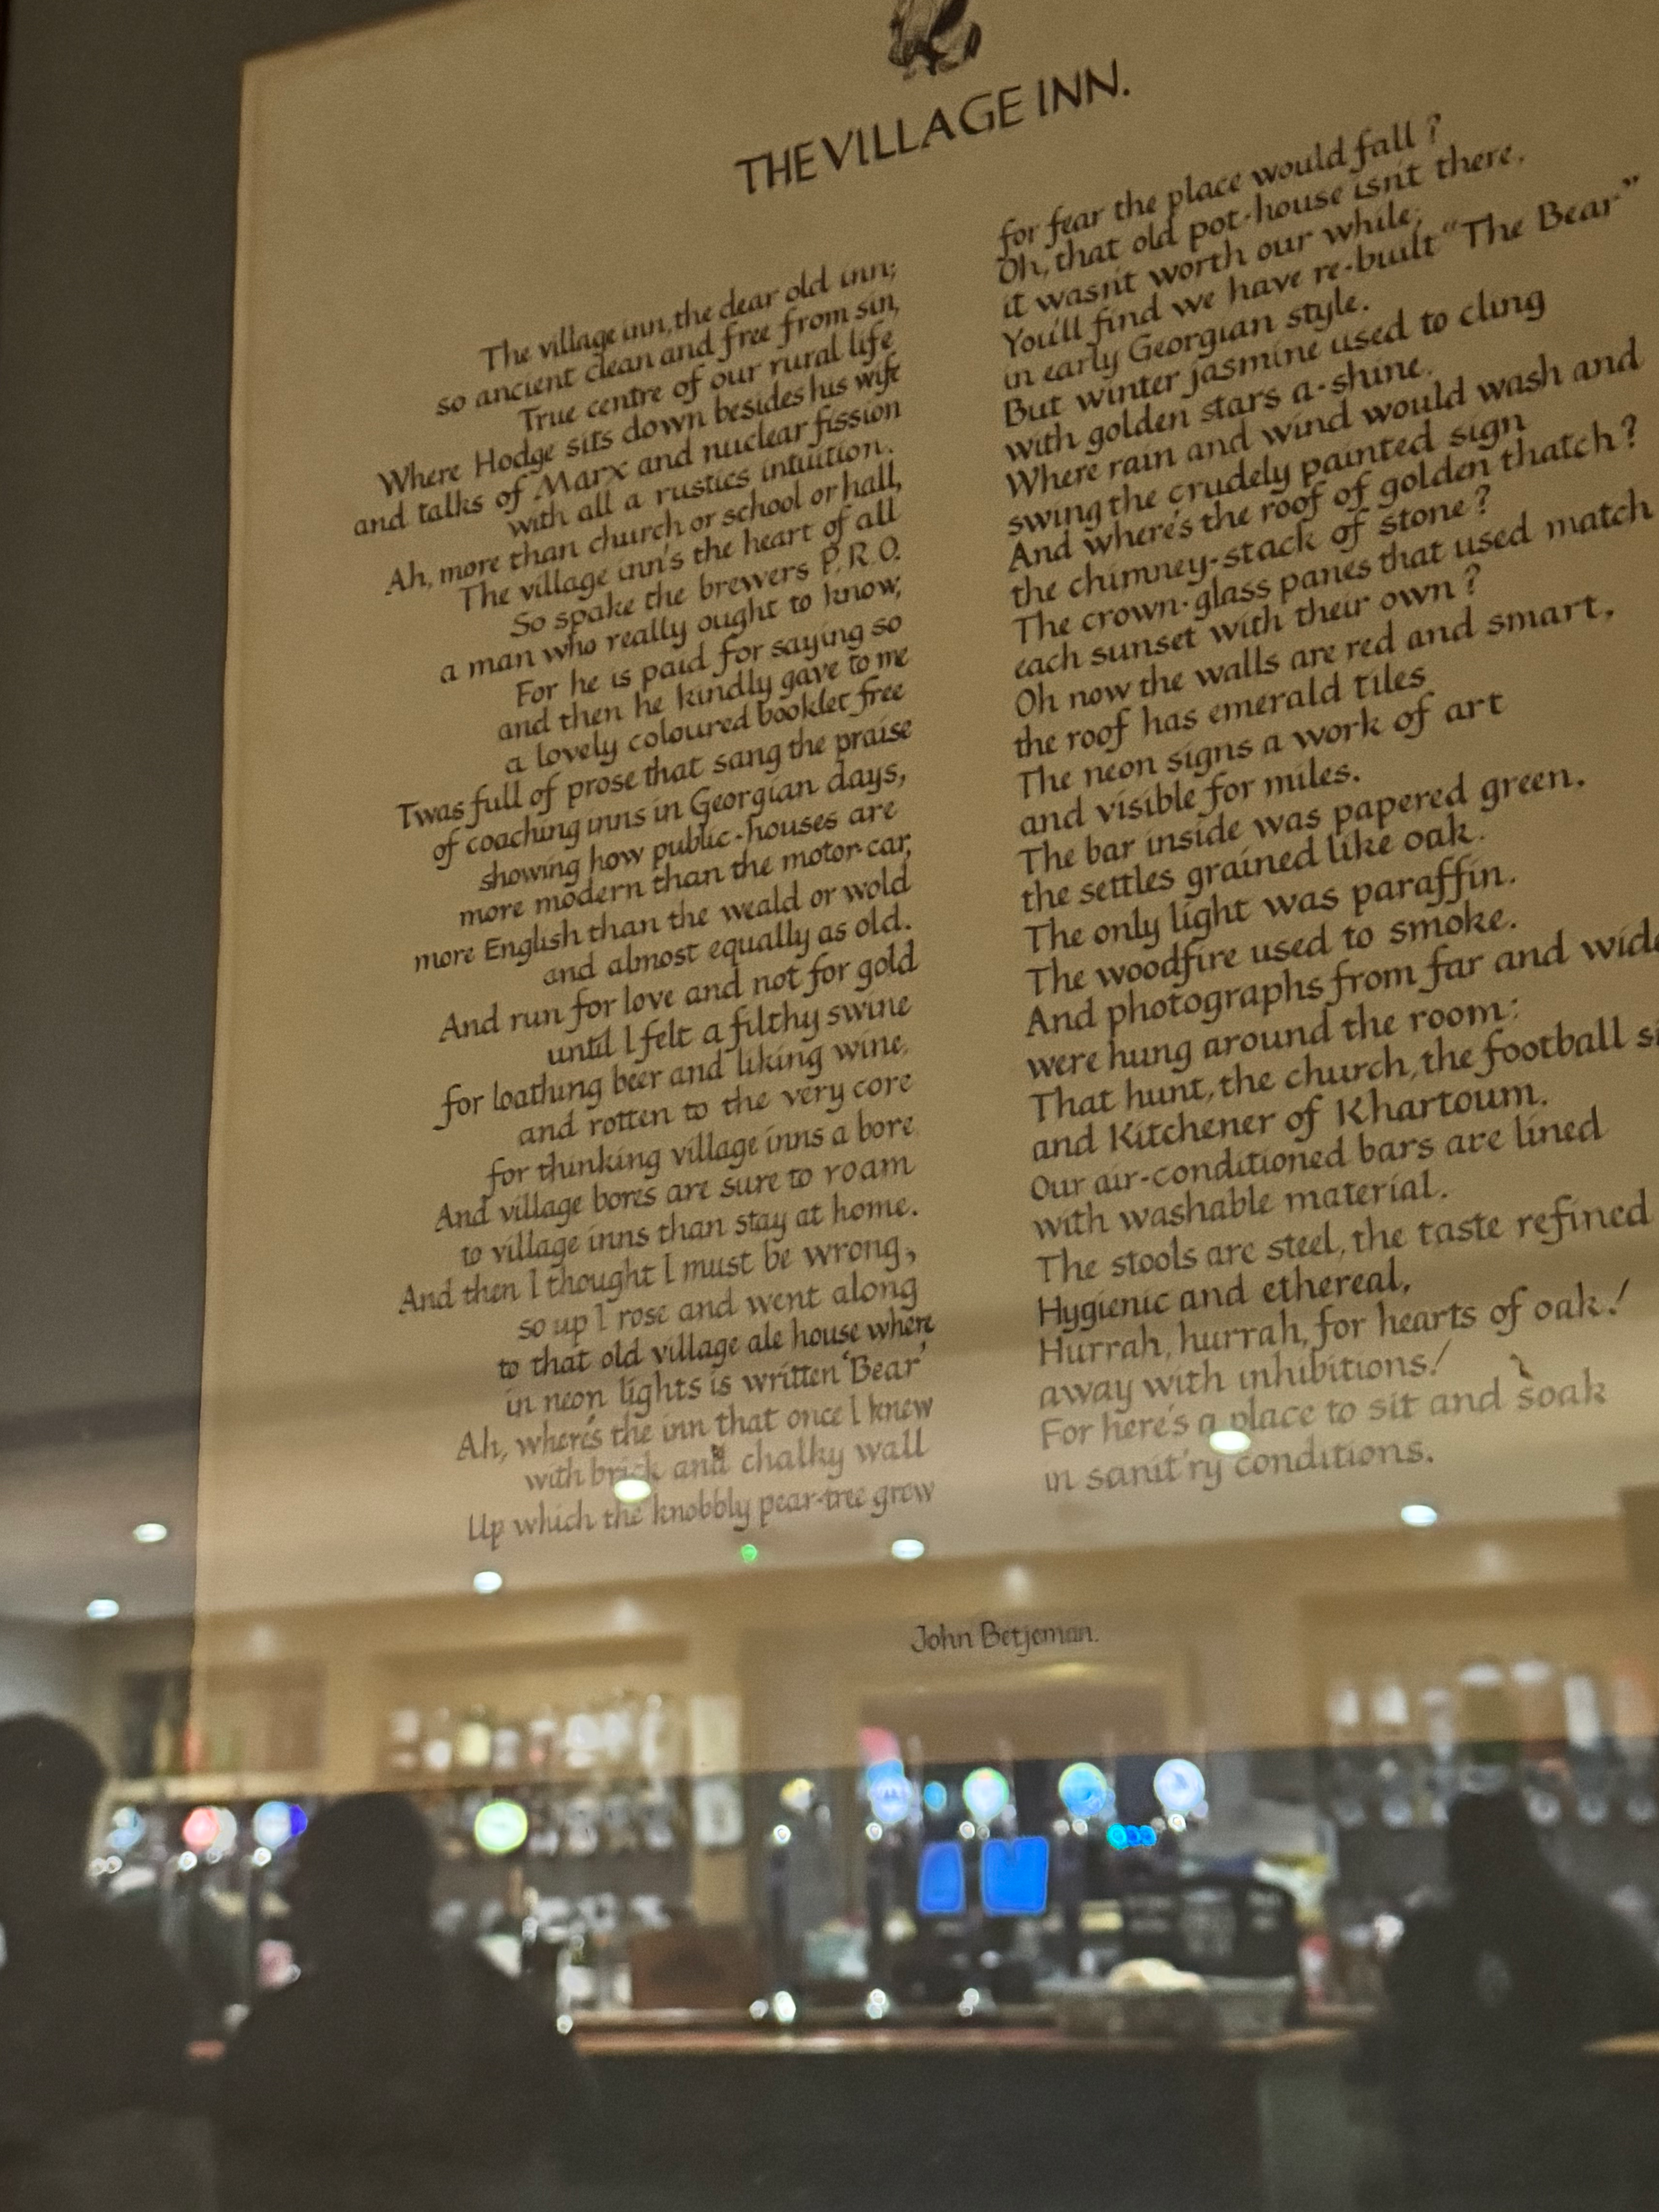 THE VILLAGE INN.
The village inn, the dear old inn;
so ancient clean and free from sin,
True centre of our rural life
Where Hodge sits down besides his wife
and talks of Marx and nuclear fission
with all a rustics intuition.
Ah, more than church or school or hall,
The village inn's the heart of all
So spake the brewers P.R.O.
a man who really ought to know,
For he is paid for saying so
and then he kindly gave to me
a lovely coloured booklet free
Twas full of prose that sang the praise
of coaching inns in Georgian days,
showing how public-houses are
more modern than the motor-car,
more English than the weald or wold
and almost equally as old.
And run for love and not for gold
until I felt a filthy swine
for loathing beer and liking wine,
and rotten to the very core
for thinking village inns a bore.
And village bores are sure to roam
to village inns than stay at home.
And then I thought I must be wrong,
so up I rose and went along
to that old village ale house where
in neon lights is written 'Bear'
Ah, where's the inn that once I knew
with brick and chalky wall
Up which the knobbly pear-tree grew
for fear the place would fall?
Oh, that old pot-house isn't there,
it wasn't worth our while;
You'll find we have re-built "The Bear"
in early Georgian style.
But winter jasmine used to cling
with golden stars a-shine.
Where rain and wind would wash and
swing the crudely painted sign
And where's the roof of golden thatch?
the chimney-stack of stone?
The crown-glass panes that used match
each sunset with their own?
Oh now the walls are red and smart,
the roof has emerald tiles
The neon signs a work of art
and visible for miles.
The bar inside was papered green,
the settles grained like oak.
The only light was paraffin.
The woodfire used to smoke.
And photographs from far and wide
were hung around the room:
That hunt, the church, the football
and Kitchener of Khartoum.
Our air-conditioned bars are lined
with washable material.
The stools are steel, the taste refined
Hygienic and ethereal,
Hurrah, hurrah, for hearts of oak!
away with inhibitions!
For here's a place to sit and soak
in sanit'ry conditions.
John Betjeman.